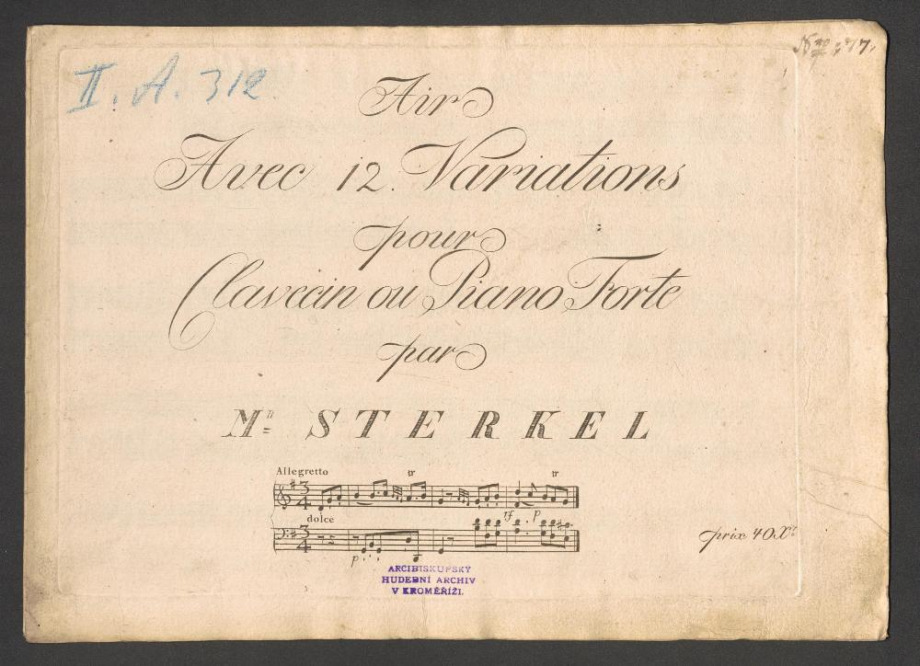 II. A. 312
Air
Avec 12. Variations
pour
Clavecin ou Piano Forte
par
Mr STERKEL
Allegretto
tr
tr
dolce
p
p
prix 40 Xr
ARCIBISKUPSKÝ
HUDEBNÍ ARCHIV
V KROMĚŘÍŽI.